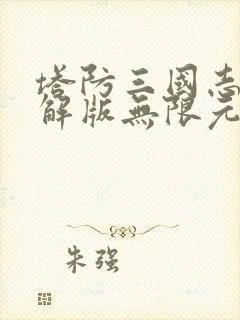 塔防三國志
解版無限元
朱强